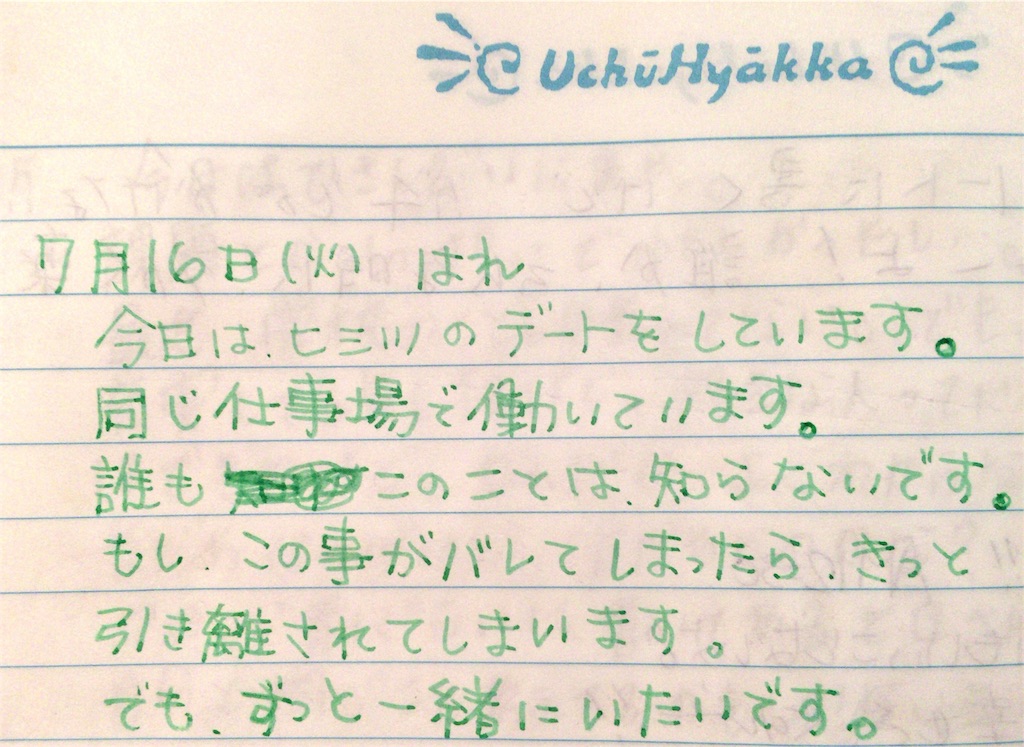 UchūHyákka
7月16日(火) はれ
今日は、ヒミツのデートをしています。
同じ仕事場で働いています。
誰もこのことは、知らないです。
もし、この事がバレてしまったら、きっと
引き離されてしまいます。
でも、ずっと一緒にいたいです。